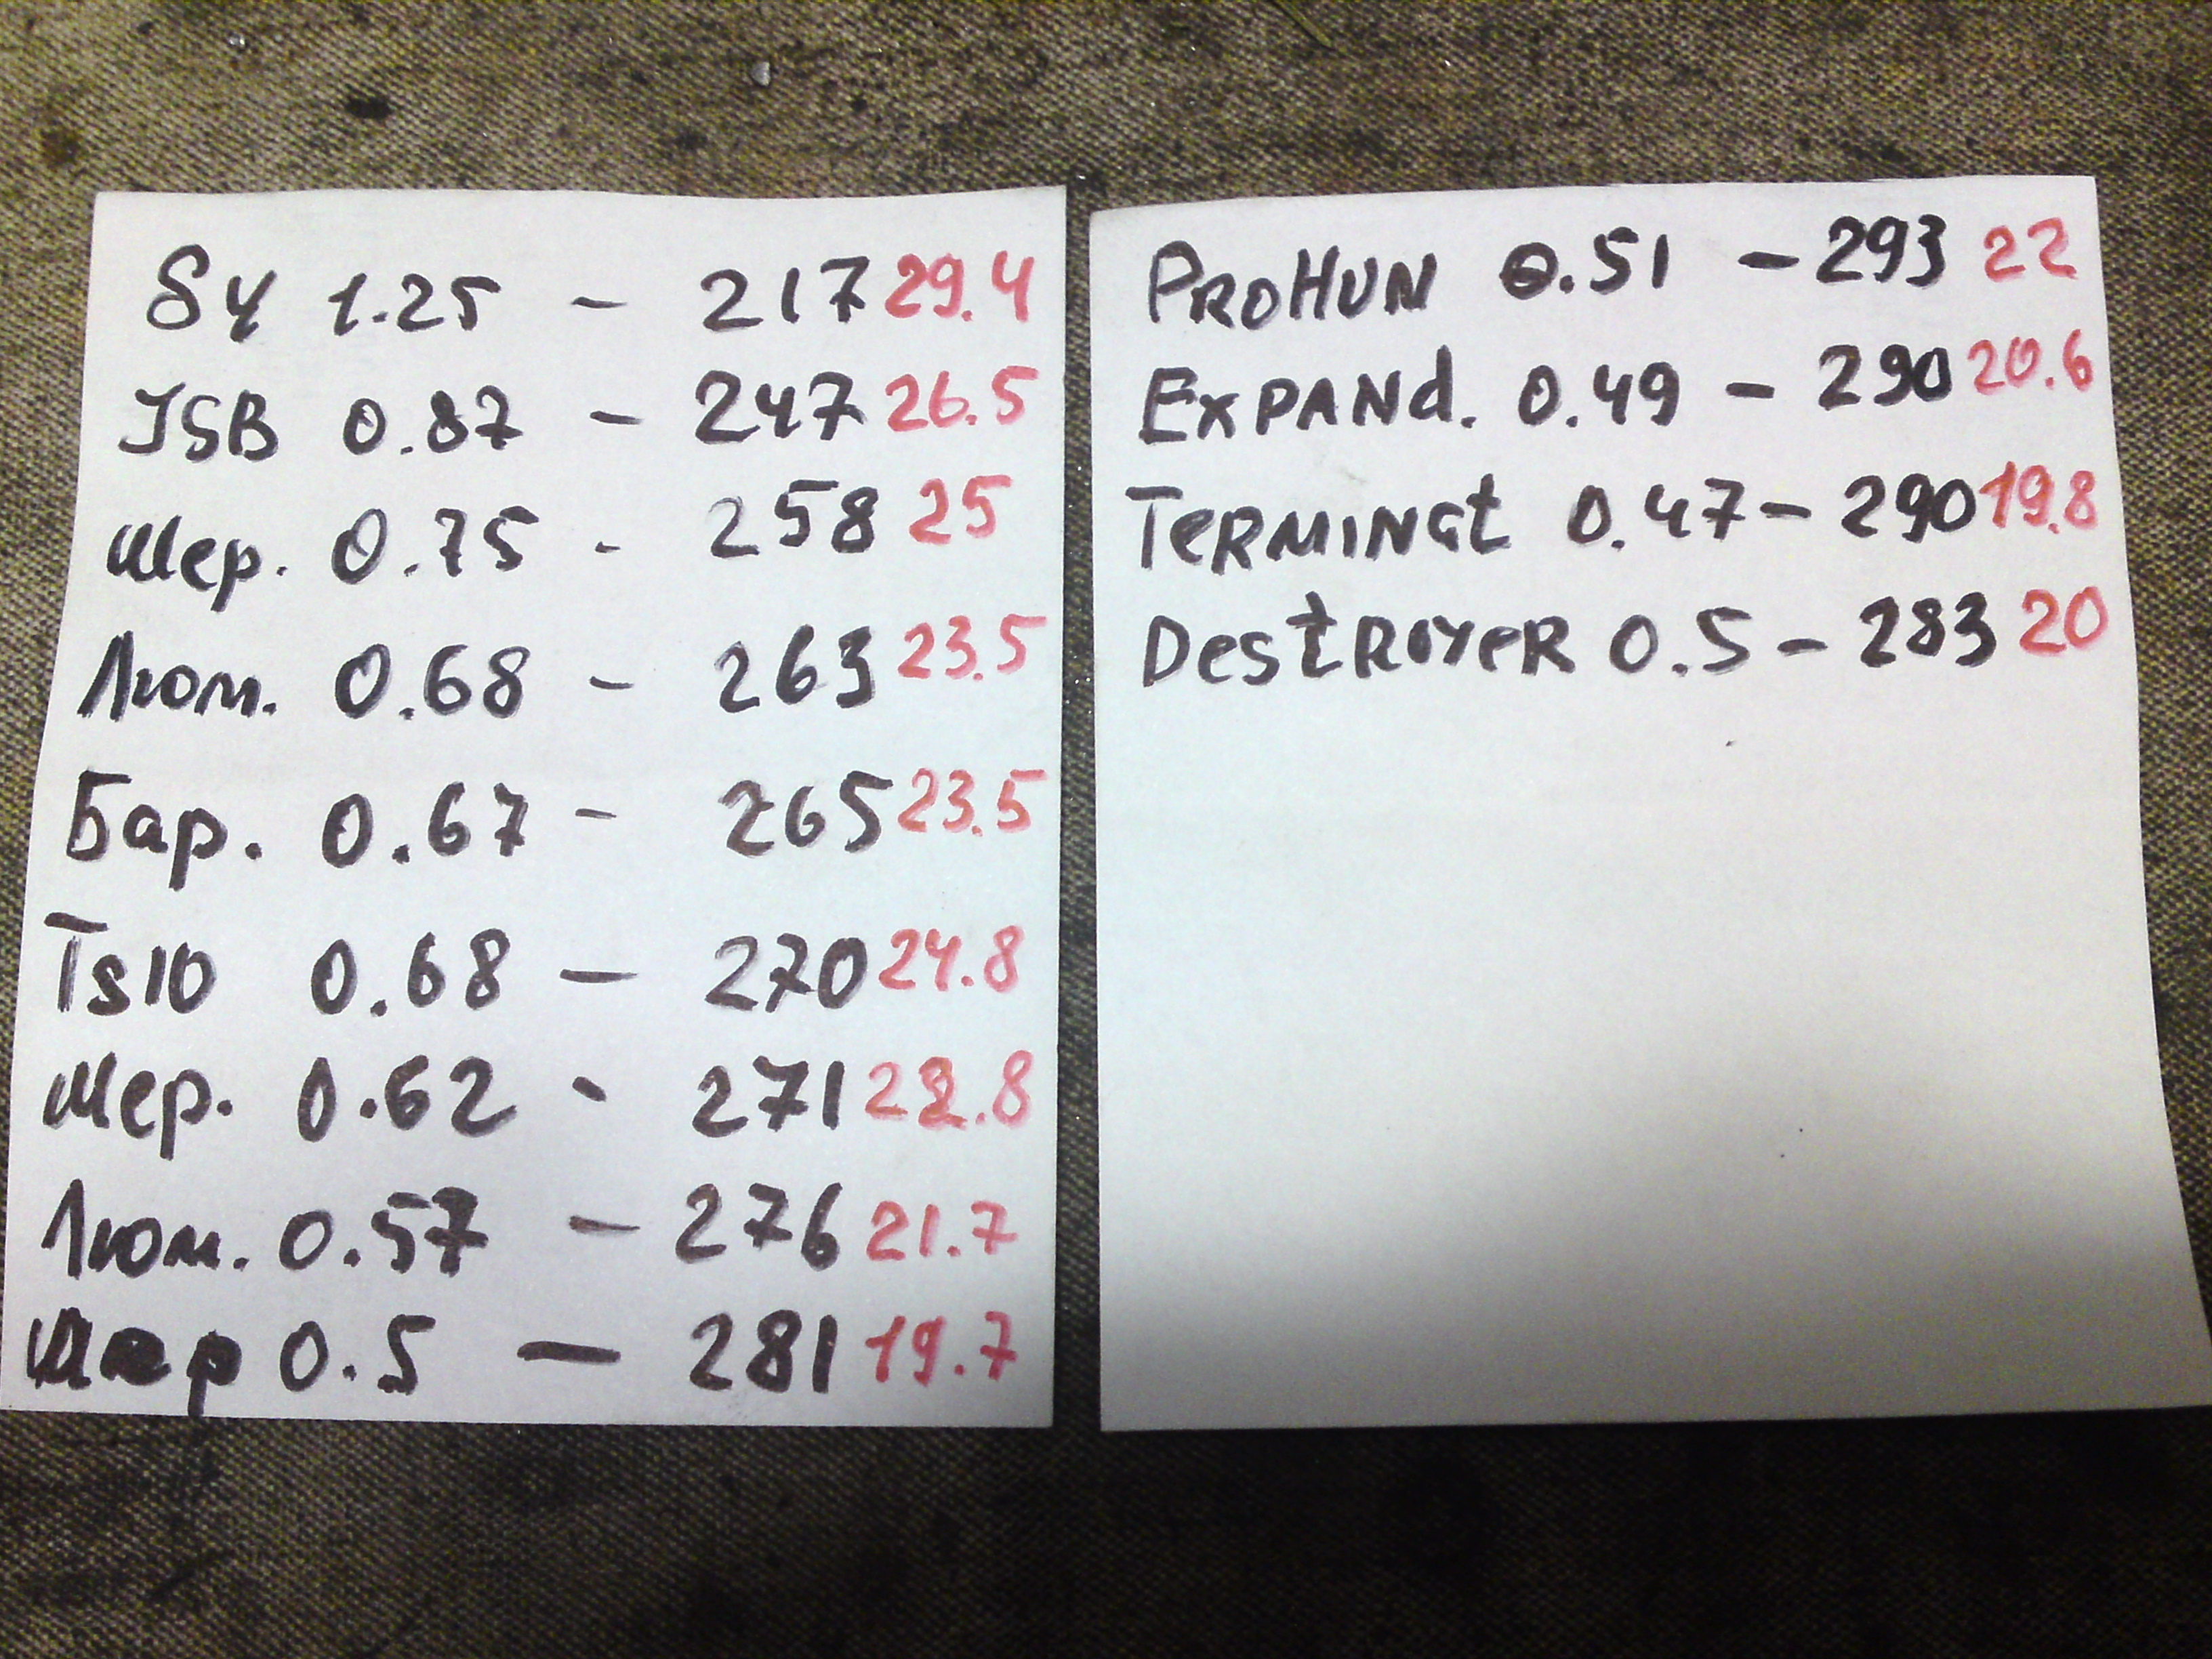 SY 1.25 - 217 29.4
JSB 0.87 - 247 26.5
Шер. 0.75 - 258 25
Люм. 0.68 - 263 23.5
Бар. 0.67 - 265 23.5
Ts10 0.68 - 270 24.8
Шер. 0.62 - 271 22.8
Люм. 0.57 - 276 21.7
0.5 - 281 19.7
PROHUN 0.51 - 293 22
EXPANd. 0.49 - 290 20.6
TeRMINat 0.47 - 290 19.8
DestROYeR 0.5 - 283 20